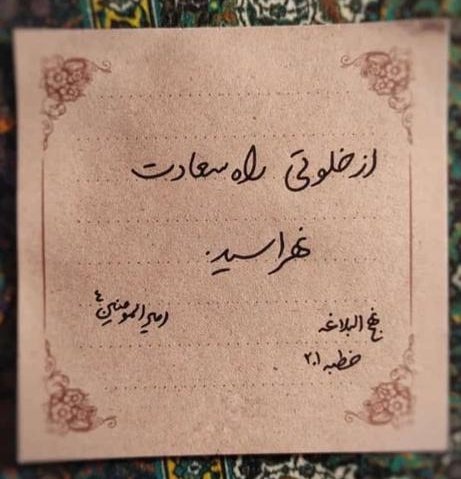 از خلوتی راه سعادت
نهراسید.
نهج البلاغه
خطبه ۲۰۱
امیرالمومنین ع